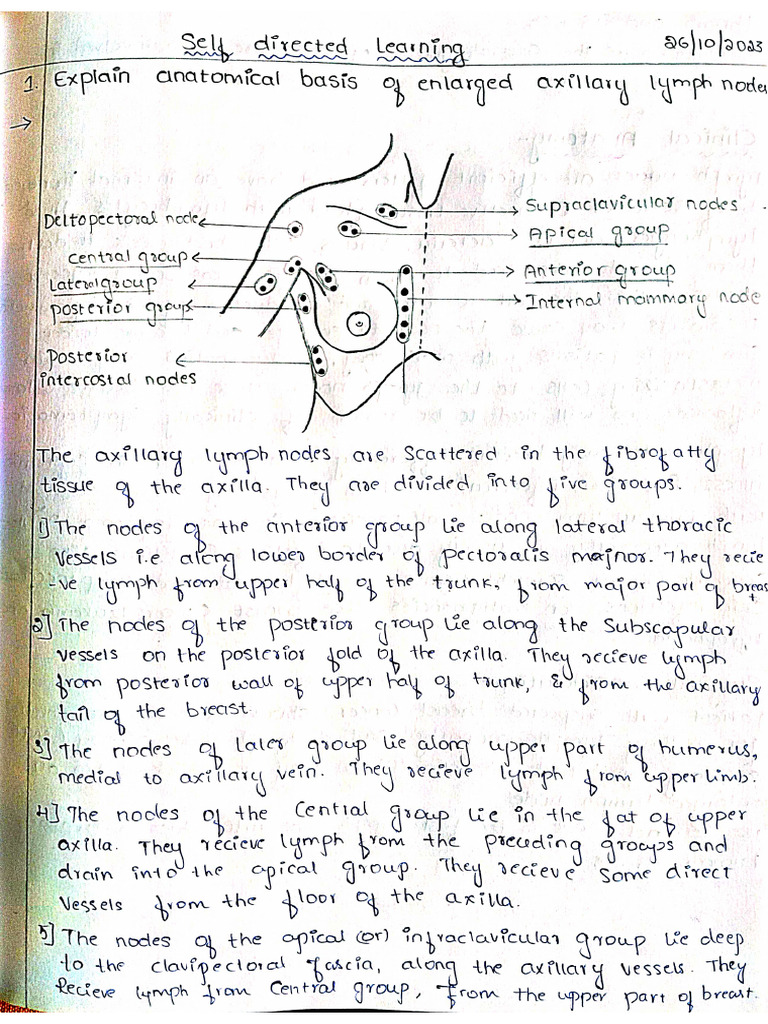 Self directed Learning 26/10/2023
1. Explain anatomical basis of enlarged axillary lymph nodes
→
Deltopectoral node
central group
Lateral group
posterior group
Posterior
intercostal nodes
Supraclavicular nodes
Apical group
Anterior group
Internal mammory node
The axillary lymph nodes are scattered in the fibrofatty
tissue of the axilla. They are divided into five groups.
1] The nodes of the anterior group lie along lateral thoracic
vessels i.e along lower border of pectoralis majnor. They recie
-ve lymph from upper half of the trunk, from major part of breast
2] The nodes of the posterior group lie along the Subscapular
vessels on the posterior fold of the axilla. They recieve lymph
from posterior wall of upper half of trunk, & from the axillary
tail of the breast
3] The nodes of later group lie along upper part of humerus,
medial to axillary vein. They recieve lymph from upper limb.
4] The nodes of the Central group lie in the fat of upper
axilla. They recieve lymph from the preceding groups and
drain into the apical group. They recieve some direct
vessels from the floor of the axilla.
5] The nodes of the apical (or) infraclavicular group lie deep
to the clavipectoral fascia, along the axillary vessels. They
Recieve lymph from Central group, from the upper part of breast.